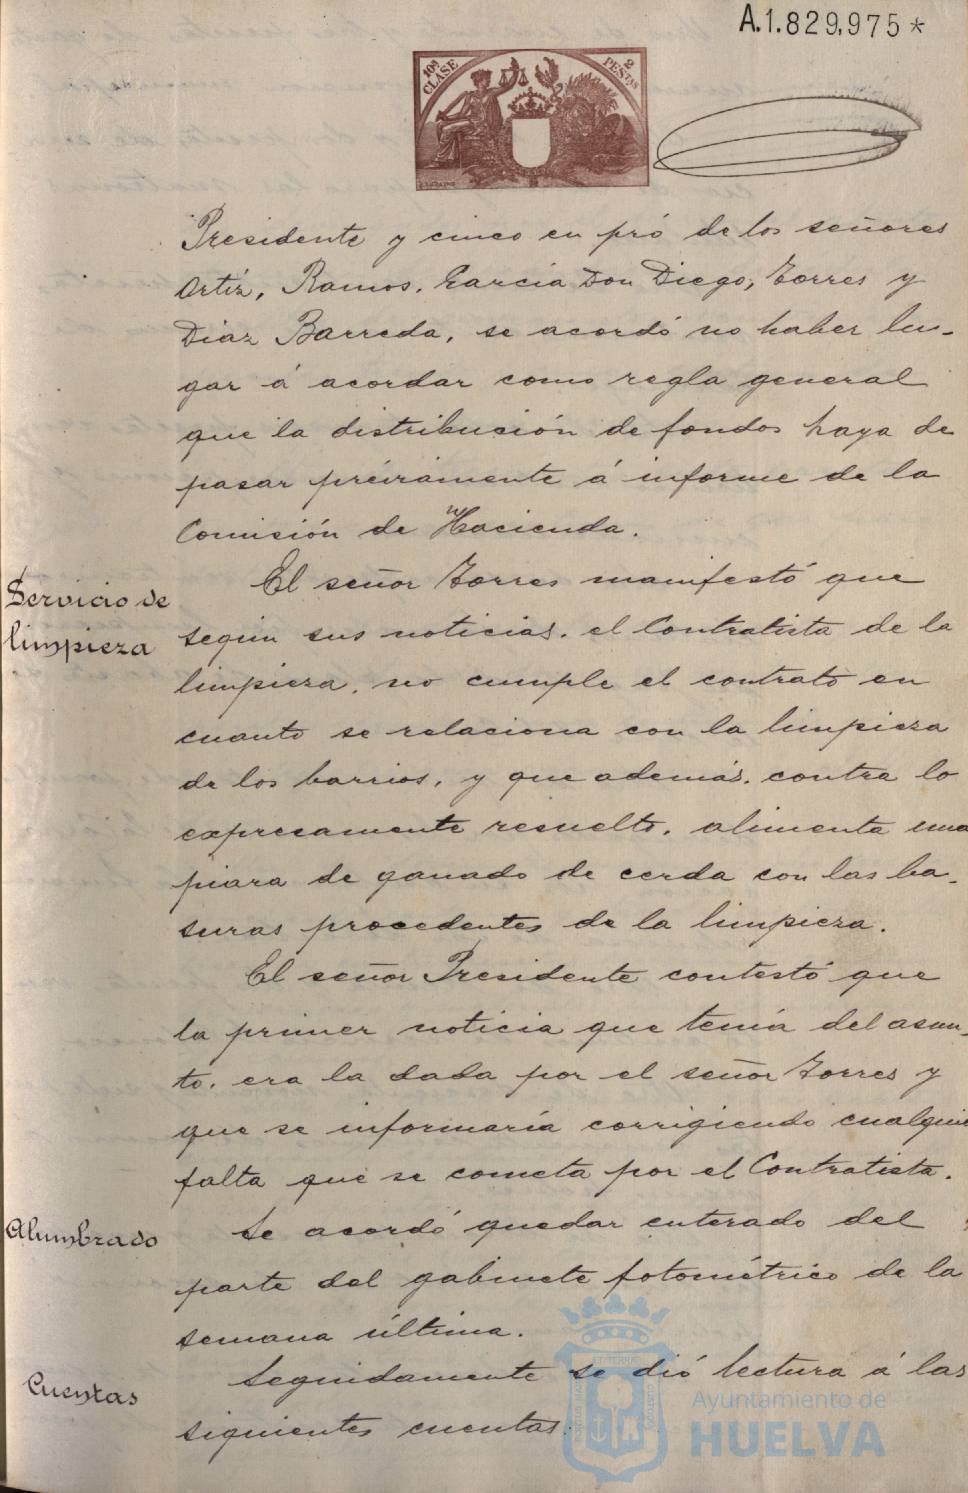 A.1.829,975*
10ª CLASE
2 PESTAS
Presidente y cinco en pró de los señores
Ortíz, Ramos, García Don Diego, Torres y
Diaz Barreda, se acordó no haber lu-
gar á acordar como regla general
que la distribución de fondos haya de
pasar préviamente á informe de la
Comisión de Hacienda.
Servicio de
limpieza
El señor Torres manifestó que
según sus noticias, el Contratista de la
limpieza, no cumple el contrato en
cuanto se relaciona con la limpieza
de los barrios, y que además, contra lo
expresamente resuelto, alimenta una
piara de ganado de cerda con las ba-
suras procedentes de la limpieza.
El señor Presidente contestó que
la primer noticia que tenía del asun-
to, era la dada por el señor Torres y
que se informaría corrigiendo cualquie
falta que se cometa por el Contratista.
Alumbrado
Se acordó quedar enterado del
parte del gabinete fotométrico de la
semana última.
Cuentas
Seguidamente se dió lectura á las
siguientes cuentas.
Ayuntamiento de
HUELVA